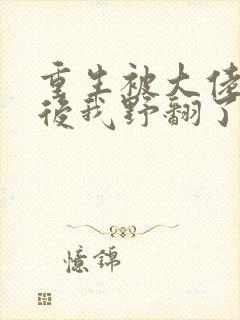 重生被大佬
後我野翻了
憶錦